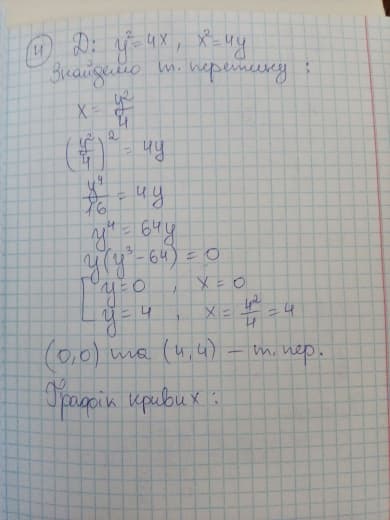 4 D: y²=4x, x²=4y
Знайдемо т. перетину:
x = y²/4
(y²/4)² = 4y
y⁴/16 = 4y
y⁴ = 64y
y(y³-64) = 0
[ y=0, x=0
y=4, x = 4²/4 = 4
(0,0) та (4,4) – т. пер.
Графік кривих: